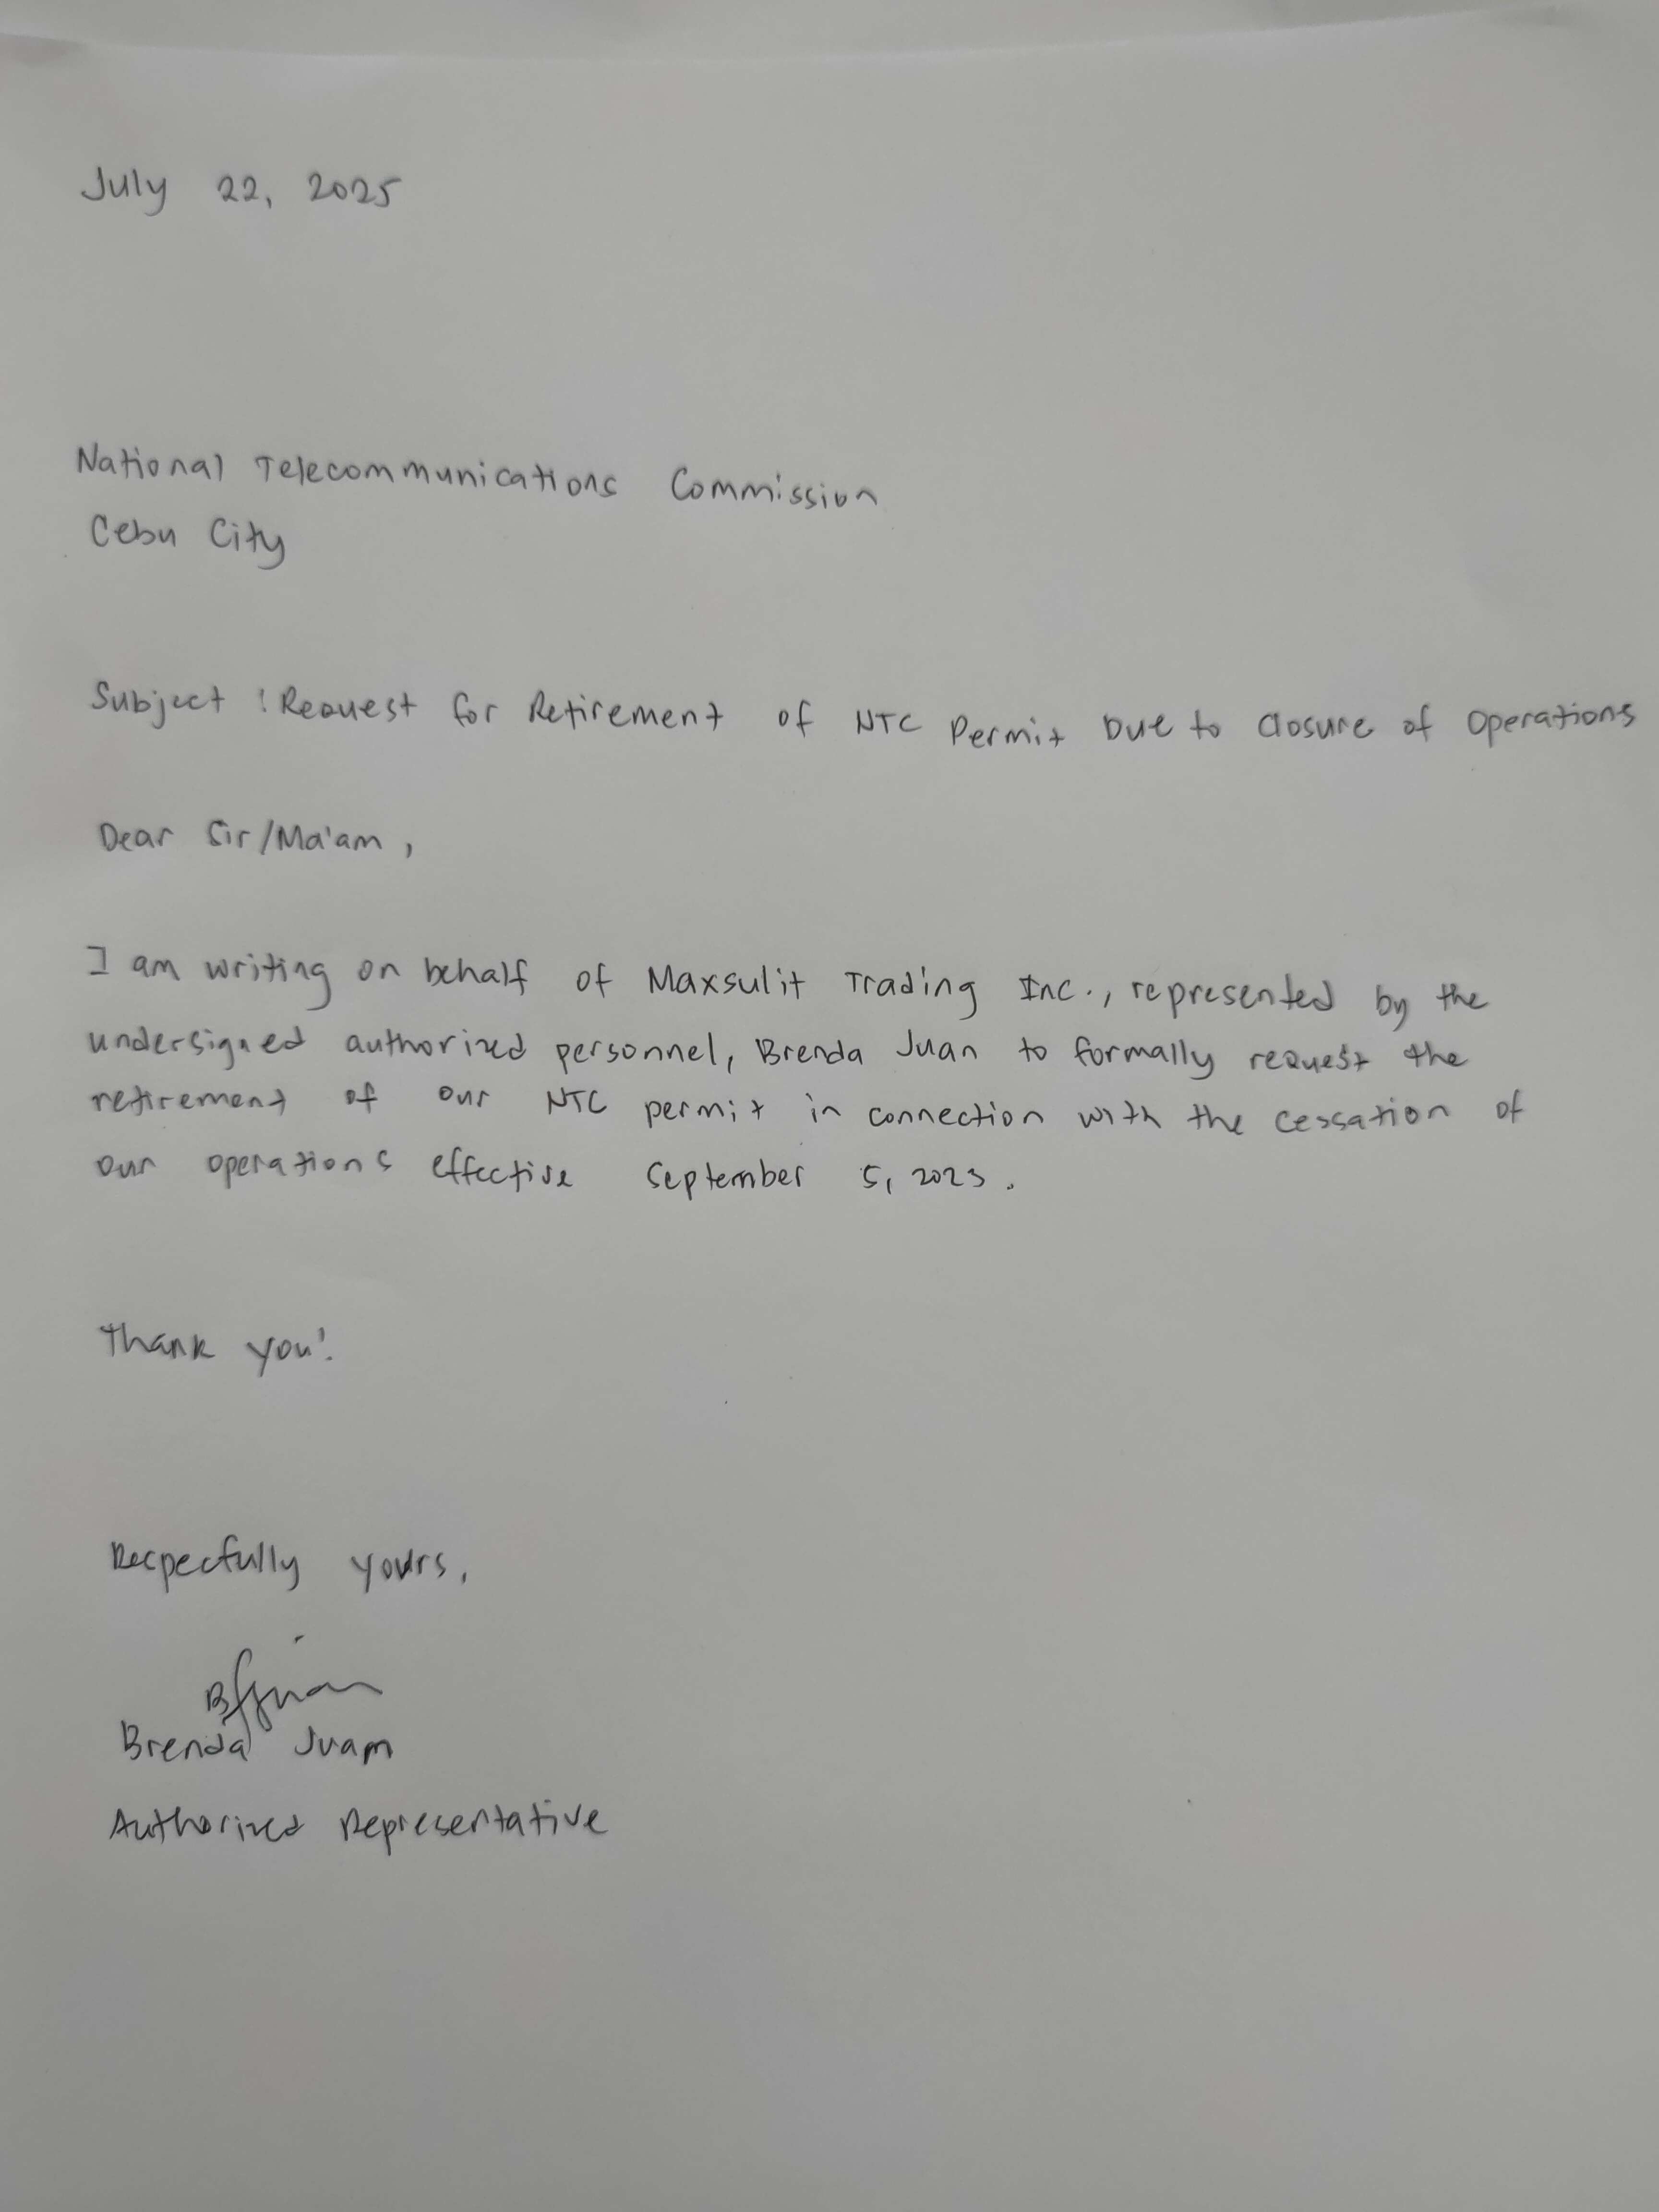 July 22, 2025
National Telecommunications Commission
Cebu City
Subject : Request for Retirement of NTC Permit Due to Closure of Operations
Dear Sir/Ma'am,
I am writing on behalf of Maxsulit Trading Inc., represented by the
undersigned authorized personnel, Brenda Juan to formally request the
retirement of our NTC permit in connection with the cessation of
our operations effective September 5, 2023.
Thank you!
Respecfully yours,
BJuan
Brenda Juan
Authorized Representative